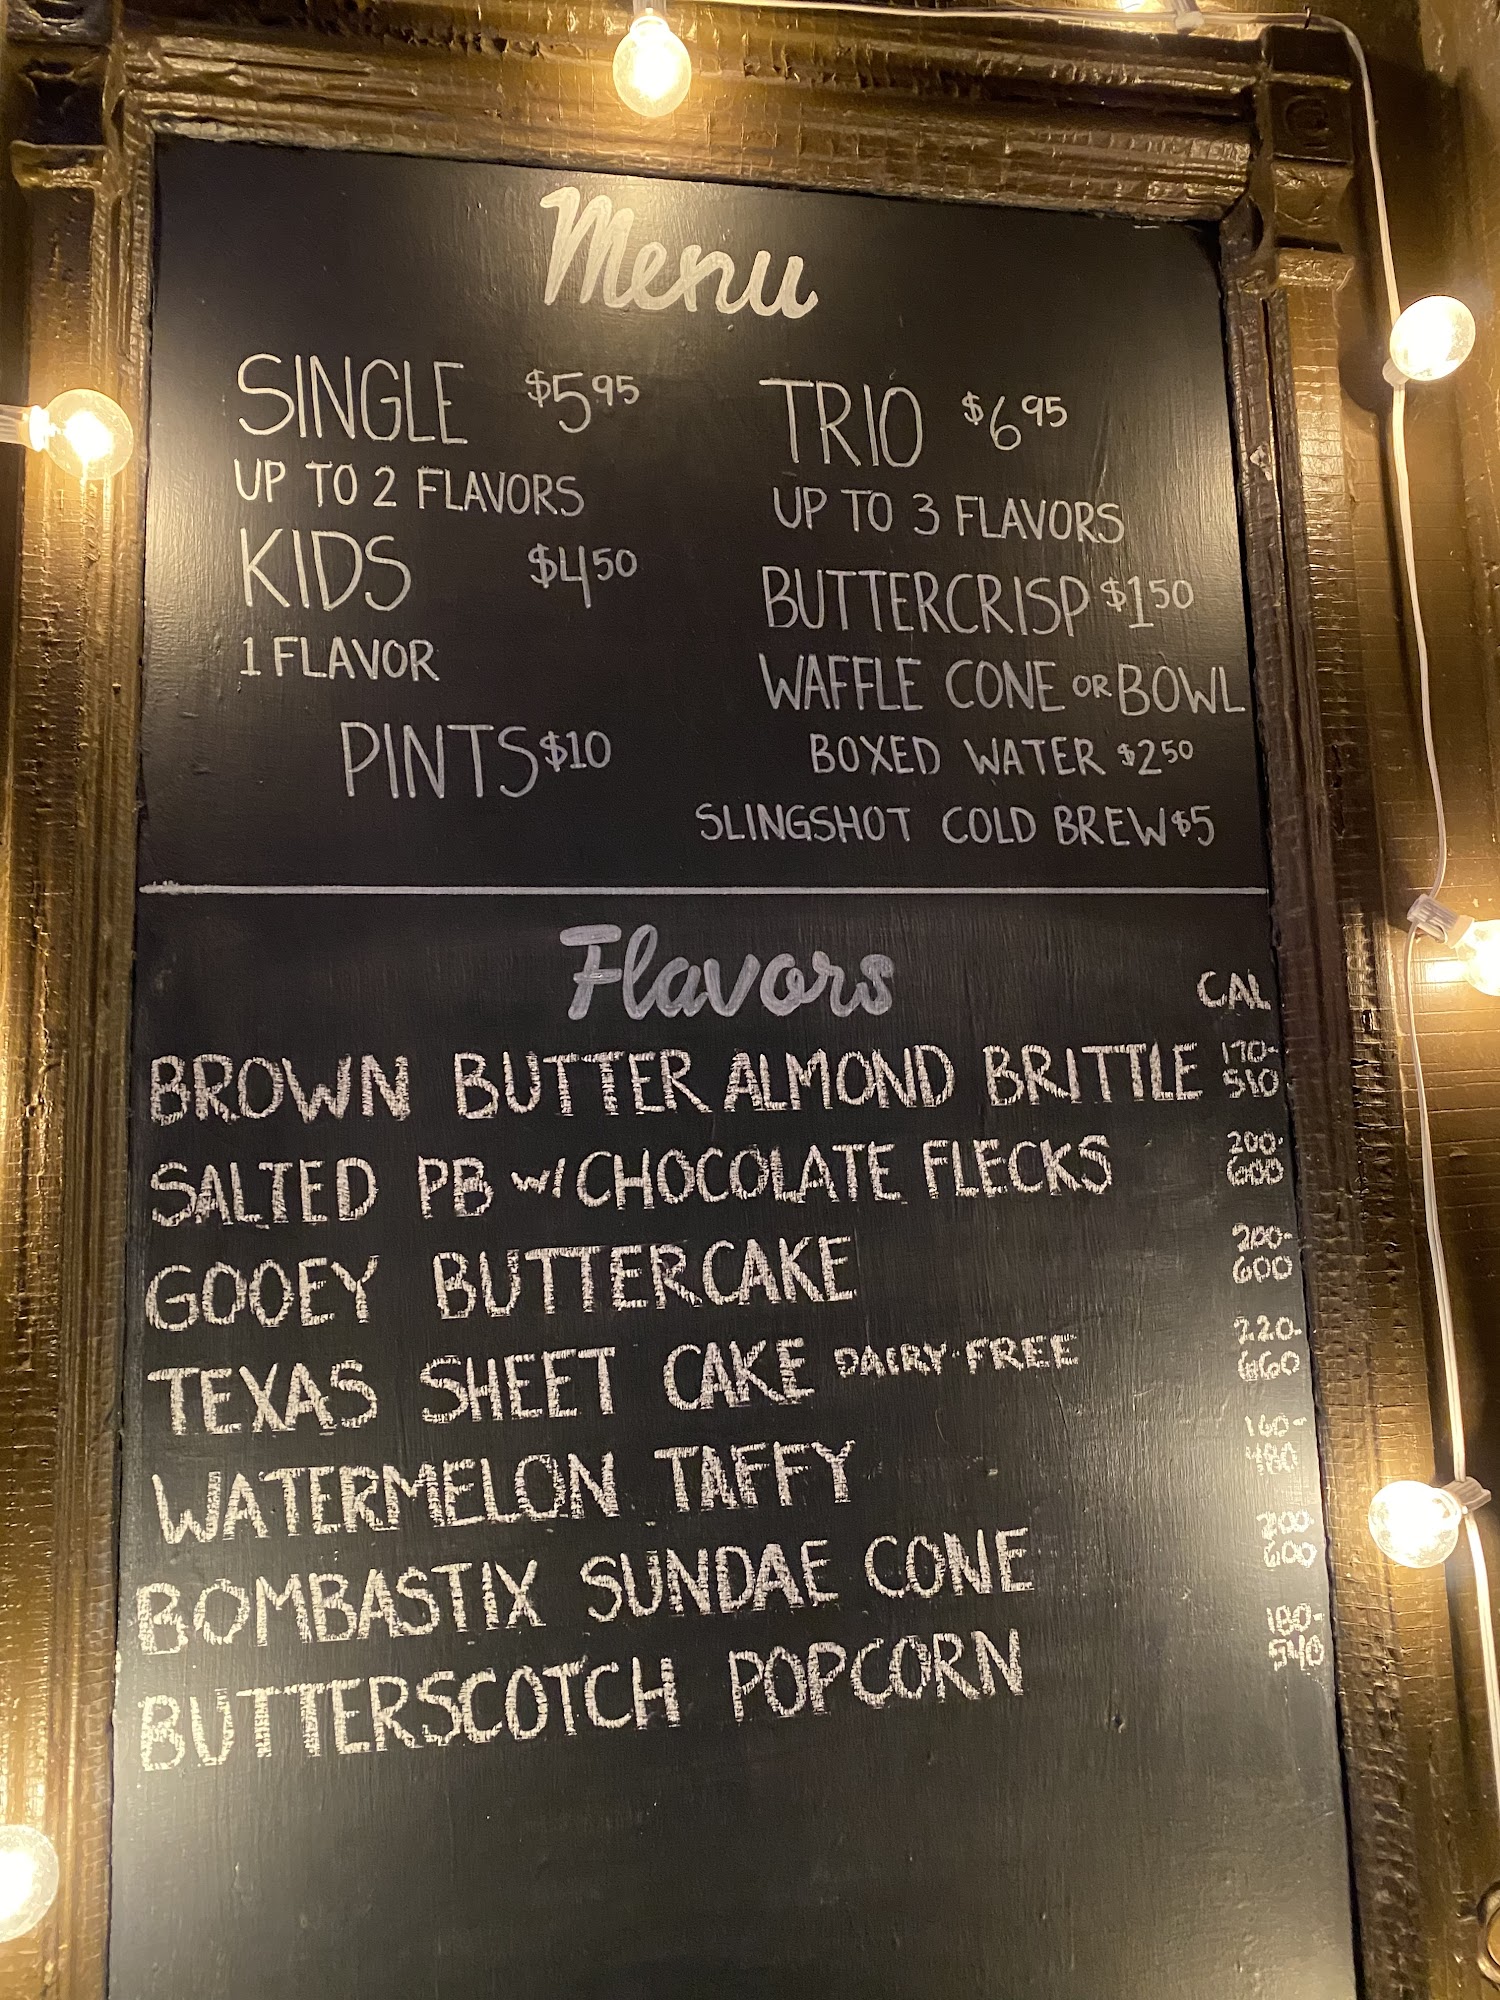 Menu
SINGLE $5.95
UP TO 2 FLAVORS
KIDS $4.50
1 FLAVOR
PINTS $10
TRIO $6.95
UP TO 3 FLAVORS
BUTTERCRISP $1.50
WAFFLE CONE OR BOWL
BOXED WATER $2.50
SLINGSHOT COLD BREW $5
Flavors
CAL
BROWN BUTTER ALMOND BRITTLE 170-510
SALTED PB W/ CHOCOLATE FLECKS 200-600
GOOEY BUTTERCAKE 200-600
TEXAS SHEET CAKE DAIRY-FREE 220-660
WATERMELON TAFFY 160-480
BOMBASTIX SUNDAE CONE 200-600
BUTTERSCOTCH POPCORN 180-540